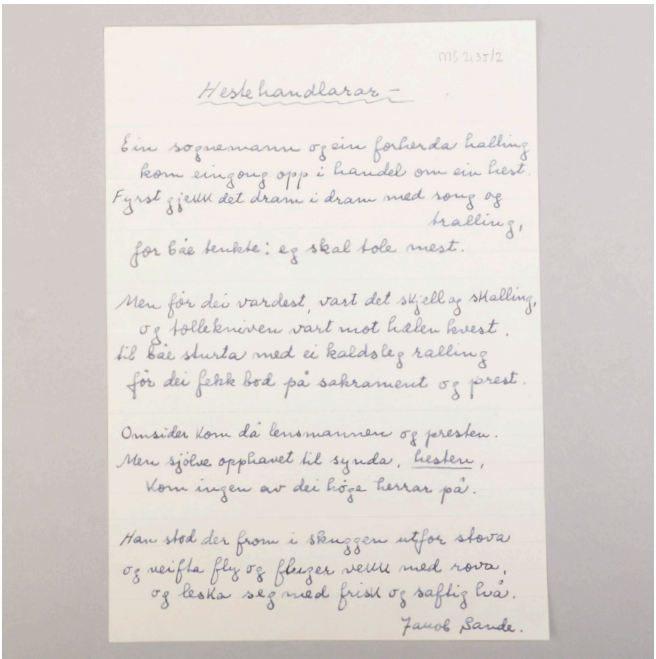 MS 2135/2
Hestehandlarar –
Ein sognemann og ein forherda halling
kom eingong opp i handel om ein hest.
Fyrst gjekk det dram i dram med song og
tralling,
for båe tenkte: eg skal tole mest.
Men før dei vardest, vart det skjell og skalling,
og tollekniven vart mot hælen kvest.
til båe sturta med ei kaldsleg ralling
før dei fekk bod på sakrament og prest.
Omsider kom då lensmannen og presten.
Men sjølve opphavet til synda, hesten,
kom ingen av dei höge herrar på.
Han stod der from i skuggen utfor stova
og veifta fly og fluger vekk med rova,
og leska seg med frisk og saftig hå.
Jakob Sande.